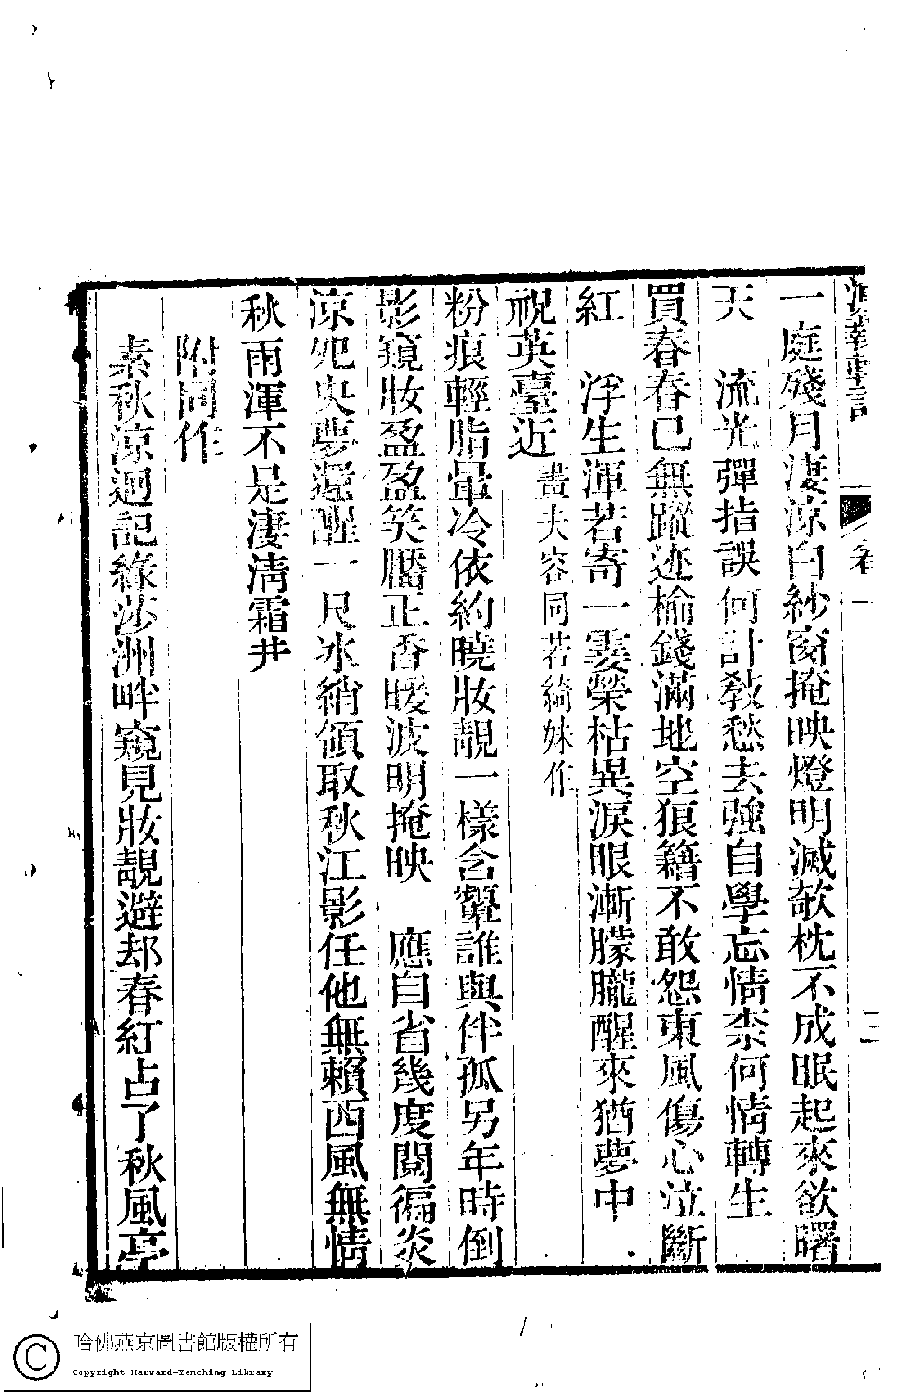 卷一
三
一庭殘月淒涼白紗窗掩映燈明滅欹枕不成眠起來欲曙
天　流光彈指誤何計敎愁去強自學忘情柰何情轉生
買春春已無蹤迹榆錢滿地空狼籍不敢怨東風傷心泣斷
紅　浮生渾若寄一霎榮枯異淚眼漸朦朧醒來猶夢中
祝英臺近 畫夫容同若綺妹作
粉痕輕脂暈冷依約曉妝靚一樣含顰誰與伴孤另年時倒
影窺妝盈盈笑靨正香暖波明掩映　應自省幾度閱徧炎
涼夗央夢還醒一尺冰綃領取秋江影任他無賴西風無情
秋雨渾不是淒淸霜井
附同作
素秋涼迴記綠莎洲畔窺見妝靚避却春紅占了秋風亭
哈佛燕京圖書館版權所有
Copyright Harvard-Yenching Library